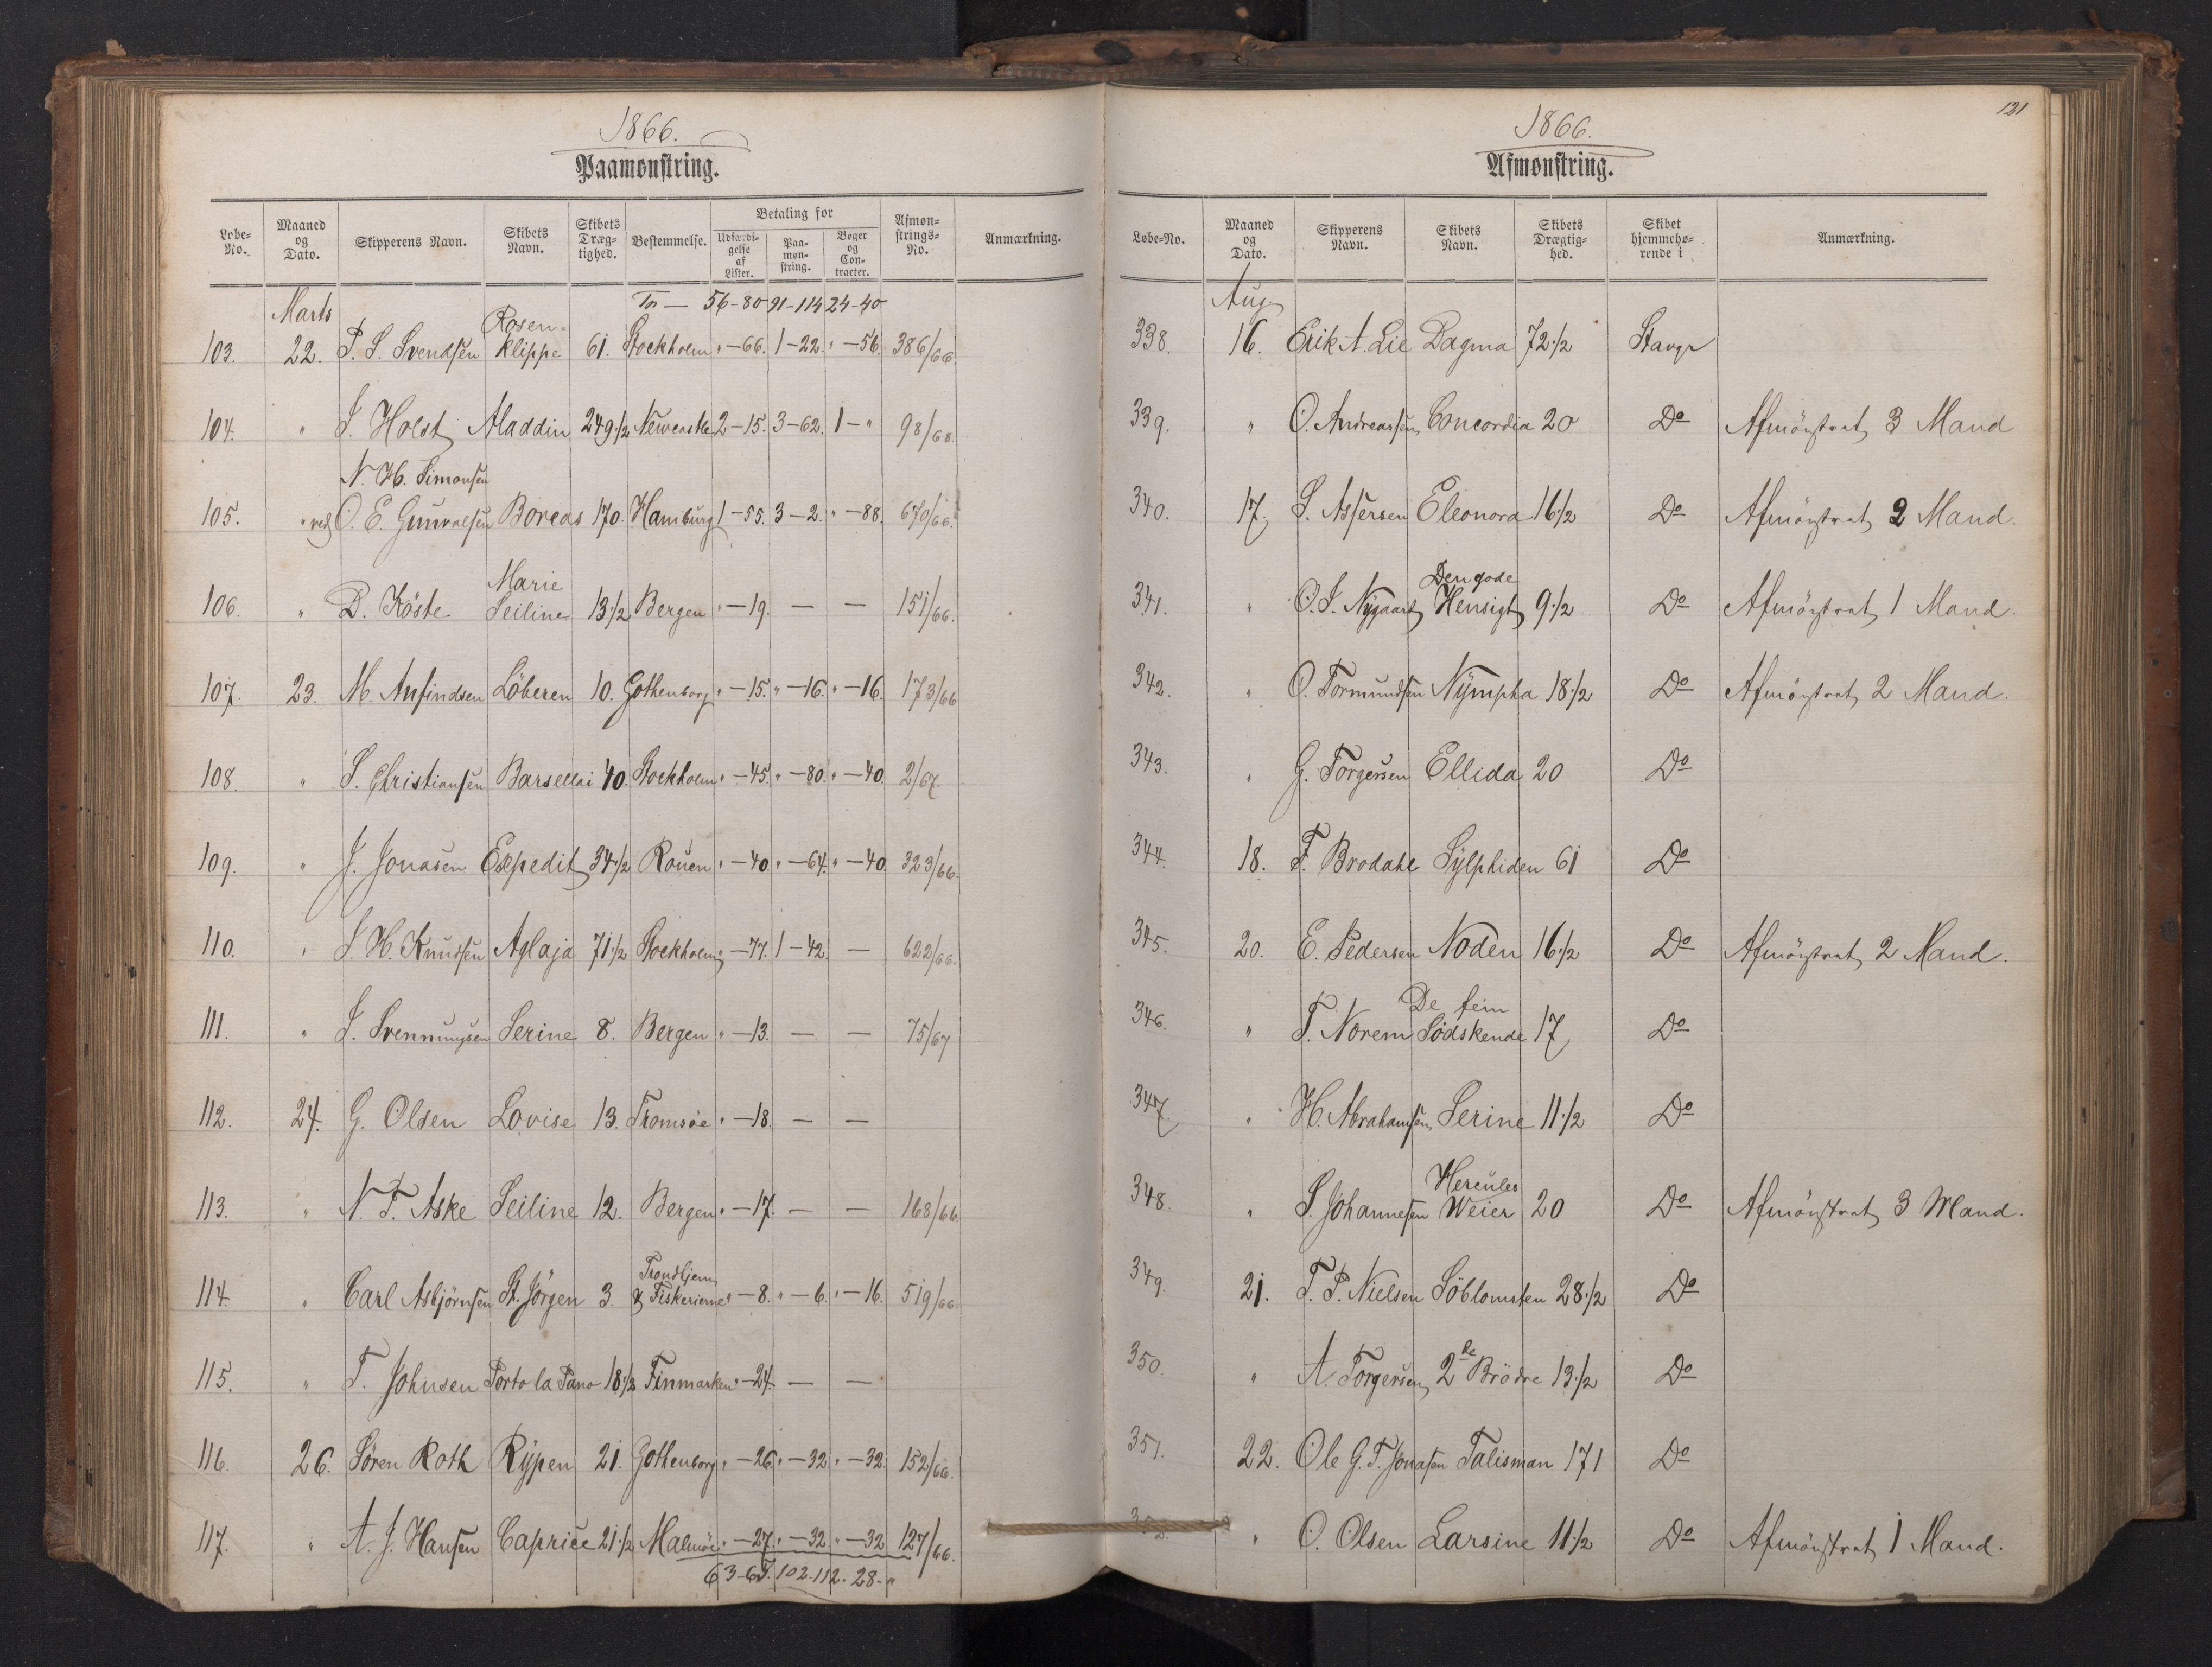 1866.
Paamønstring.
Løbe-No. Maaned og Dato. Skipperens Navn. Skibets Navn. Skibets Dræg-tighed. Bestemmelse. Betaling for Udfærdi-gelse af Lister. Paa-møn-string. Bøger og Con-tracter. Afmøn-strings-No. Anmærkning.
Marts Tr — 56-80 91-114 24-40
103. 22. P. S. Svendsen Rosen-klippe 61. Stockholm " -66. 1-22. " -56. 386/66
104. " J. Holst Aladdin 249 1/2 Newcastle 2-15. 3-62. 1-" 98/68.
N. H. Simonsen
105. " ved O. E. Gunvalsen Boreas 170. Hamburg 1-55. 3-2. " -88. 670/66.
106. " D. Köste Marie Seiline 13 1/2 Bergen " -19. — — 151/66.
107. 23. M. Anfindsen Löberen 10. Gothenborg " -15. " -16. " -16. 173/66
108. " S. Christiansen Barsellai 40. Stockholm " -45. " -80. " -40. 2/67.
109. " J. Jonasen Expedit 34 1/2 Rouen " -40. " -64. " -40. 323/66.
110. " J. H. Knudsen Aglaja 71 1/2 Stockholm " -77. 1-42. — 622/66.
111. " J. Svennungsen Serine 8. Bergen " -13. — — 75/67
112. 24. G. Olsen Lovise 13. Tromsøe " -18. — —
113. " N. T. Aske Seiline 12. Bergen " -17. — — 168/66.
114. " Carl Asbjörnsen St. Jörgen 3. Trondhjem & Fiskerierne " -8. " -6. " -16. 519/66.
115. " T. Johnsen Porto la Pano 18 1/2 Finmarken " -24. — —
116. 26. Sören Roth Rypen 21. Gothenborg " -26. " -32. " -32. 152/66.
117. " A. J. Hansen Caprice 21 1/2 Malmöe " -27. " -32. " -32 127/66.
102. 112. 28-"
121
1866.
Afmønstring.
Løbe-No. Maaned og Dato. Skipperens Navn. Skibets Navn. Skibets Drægtig-hed. Skibet hjemmehø-rende i Anmærkning.
Aug
338. 16. Erik A. Lie Dagma 72 1/2 Stavgr
339. " O. Andreassen Concordia 20 Do Afmönstret 3 Mand
340. 17. S. Assersen Eleonora 16 1/2 Do Afmönstret 2 Mand.
341. " O. J. Nygaard Den gode Hensigt 9 1/2 Do Afmönstret 1 Mand.
342. " O. Tormundsen Nympha 18 1/2 Do Afmönstret 2 Mand.
343. " G. Torgersen Ellida 20 Do
344. 18. F. Brodahl Sylphiden 61 Do
345. 20. E. Pedersen Noden 16 1/2 Do Afmönstret 2 Mand.
346. " T. Norem De fem Södskende 17 Do
347. " H. Abrahamsen Serine 11 1/2 Do
348. " S. Johannesen Hercules Weier 20 Do Afmönstret 3 Mand.
349. 21. T. P. Nielsen Söblomsten 28 1/2 Do
350. " A. Torgersen 2de Brödre 13 1/2 Do
351. 22. Ole G. T. Jonasen Talisman 171 Do
352. " O. Olsen Larsine 11 1/2 Do Afmönstret 1 Mand.